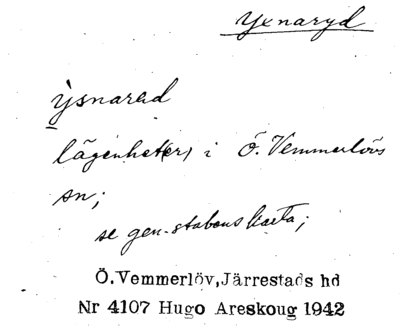 Yxnaryd
ỳsnarad
lägenhet(er) i Ö. Vemmerlövs
sn;
se gen.stabens karta;
Ö.Vemmerlöv, Järrestads hd
Nr 4107 Hugo Areskoug 1942